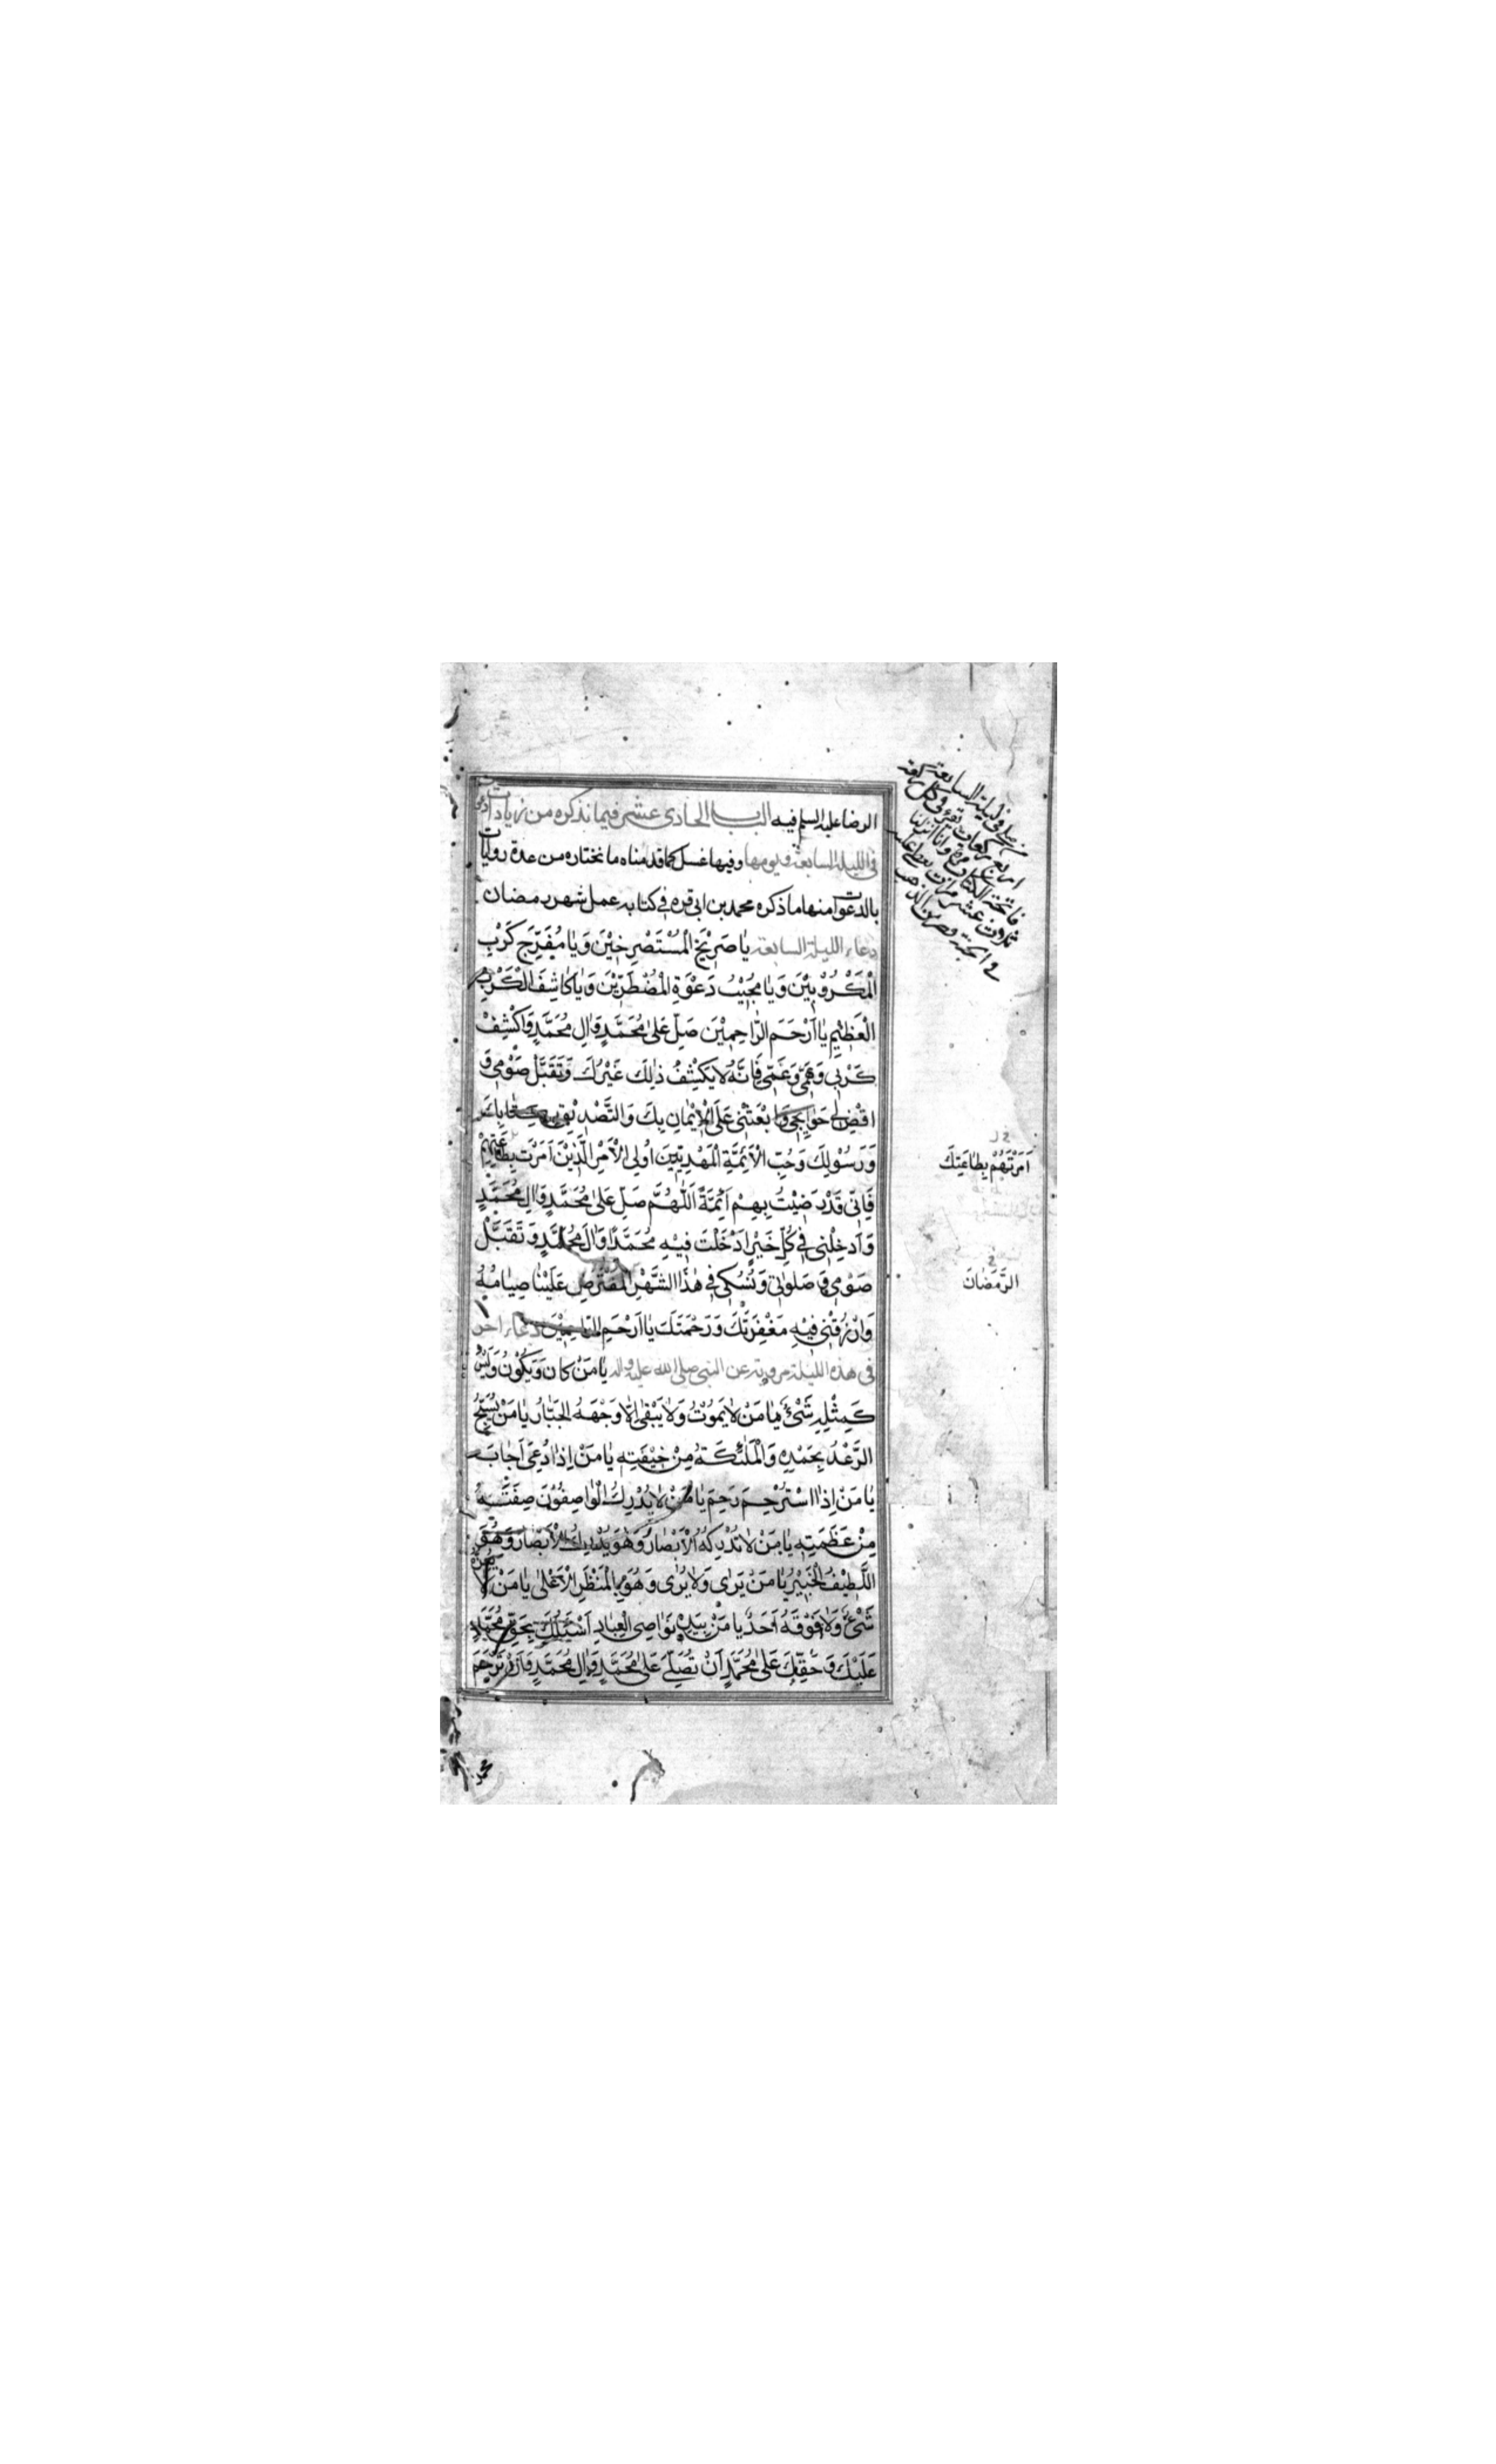 الرضا عليه السلم فيه الباب الحادي عشر فيما نذكره من زيادات
في الليلة السابعة ويومها وفيها غسل كما قدمناه ما نختاره من عدة روايات
بالدعوات منها ما ذكره محمد بن ابي قره في كتابه عمل شهر رمضان
دعاء الليلة السابعة يٰا صَرِيْخَ الْمُسْتَصْرِخِيْنَ وَيٰا مُفَرِّجَ كَرْبِ
الْمَكْرُوْبِيْنَ وَيٰا مُجِيْبُ دَعْوَةِ الْمُضْطَرِّيْنَ وَيٰا كٰاشِفَ الْكَرْبِ
الْعَظِيْمِ يٰا اَرْحَمَ الرّٰاحِمِيْنَ صَلِّ عَلىٰ مُحَمَّدٍ وَاٰلِ مُحَمَّدٍ وَاكْشِفْ
كَرْبي وَهَمّي وَغَمّي فَاِنَّهُ لا يَكْشِفُ ذٰلِكَ غَيْرُكَ وَتَقَبَّلْ صَوْمي وَ
اقْضِ لي حَوٰائِجي وَابْعَثْنى عَلَى الْاِيْمٰانِ بِكَ وَالتَّصْدِيْقِ بِكِتٰابِكَ
وَرَسُوْلِكَ وَحُبِّ الْاَئِمَّةِ الْمَهْدِيّيْنَ اُولِى الْاَمْرِ الَّذيْنَ اَمَرْتَ بِطٰاعَتِهِمْ
فَاِنّى قَدْ رَضيْتُ بِهِمْ اَئِمَّةً اَللّٰهُمَّ صَلِّ عَلىٰ مُحَمَّدٍ وَاٰلِ مُحَمَّدٍ
وَاَدخِلْنى في كُلِّ خَيْرٍ اَدْخَلْتَ فيْهِ مُحَمَّدًا وَاٰلَ مُحَمَّدٍ وَتَقَبَّلْ
صَوْمي وَصَلوٰتي وَنُسُكي في هٰذَا الشَّهْرِ الْمُفْتَرَضِ عَلَيْنٰا صِيٰامُهُ
وَارْزُقْنى فيْهِ مَغْفِرَتَكَ وَرَحْمَتَكَ يٰا اَرْحَمَ الرّٰاحِميْنَ دعاء اخر
في هذه الليلة مروية عن النبي صلى الله عليه واله يٰا مَنْ كٰانَ وَيَكُوْنُ وَلَيْسَ
كَمِثْلِهِ شَيْءٌ يٰا مَنْ لٰا يَمُوْتُ وَلٰا يَبْقىٰ اِلّٰا وَجْهَهُ الجَبّٰارُ يٰا مَنْ يُسَبِّحُ
الرَّعْدُ بِحَمْدِهِ وَالْمَلٰئِكَةُ مِنْ خيْفَتِهِ يٰا مَنْ اِذٰا دُعِيَ اَجٰابَ
يٰا مَنْ اِذَا اسْتُرْحِمَ رَحِمَ يٰا مَنْ لٰا يُدْرِكُ الْوٰاصِفُوْنَ صِفَتَهُ
مِنْ عَظَمَتِهِ يٰا مَنْ لٰا تُدْرِكهُ الْاَبْصٰارُ وَهُوَ يُدْرِكُ الْاَبْصٰارَ وَهُوَ
اللَّطيْفُ الْخَبيْرُ يٰا مَنْ يَرٰى وَلٰا يُرٰى وَهُوَ بِالْمَنْظَرِ الْاَعْلىٰ يٰا مَنْ لٰا يُعِزُّهُ
شَيْءٌ وَلٰا فَوْقَهُ اَحَدٌ يٰا مَنْ بِيَدِهِ نَوٰاصِي الْعِبٰادِ اَسْئَلُكَ بِحَقِّ مُحَمَّدٍ
عَلَيْكَ وَحَقِّكَ عَلىٰ مُحَمَّدٍ اَنْ تُصَلّيَ عَلىٰ مُحَمَّدٍ وَاٰلِ مُحَمَّدٍ وَاَنْ تَرْحَمَ
محمد
من صلى في ليلة السابعة
اربع ركعات تقرء في كل ركعة
فاتحة الكتاب مرة وانا انزلناه
ثلاث عشر مرات
في الجنة قصر من الذهب
اَمَرْتَهُمْ بِطٰاعَتِكَ
الرَّمَضٰانَ